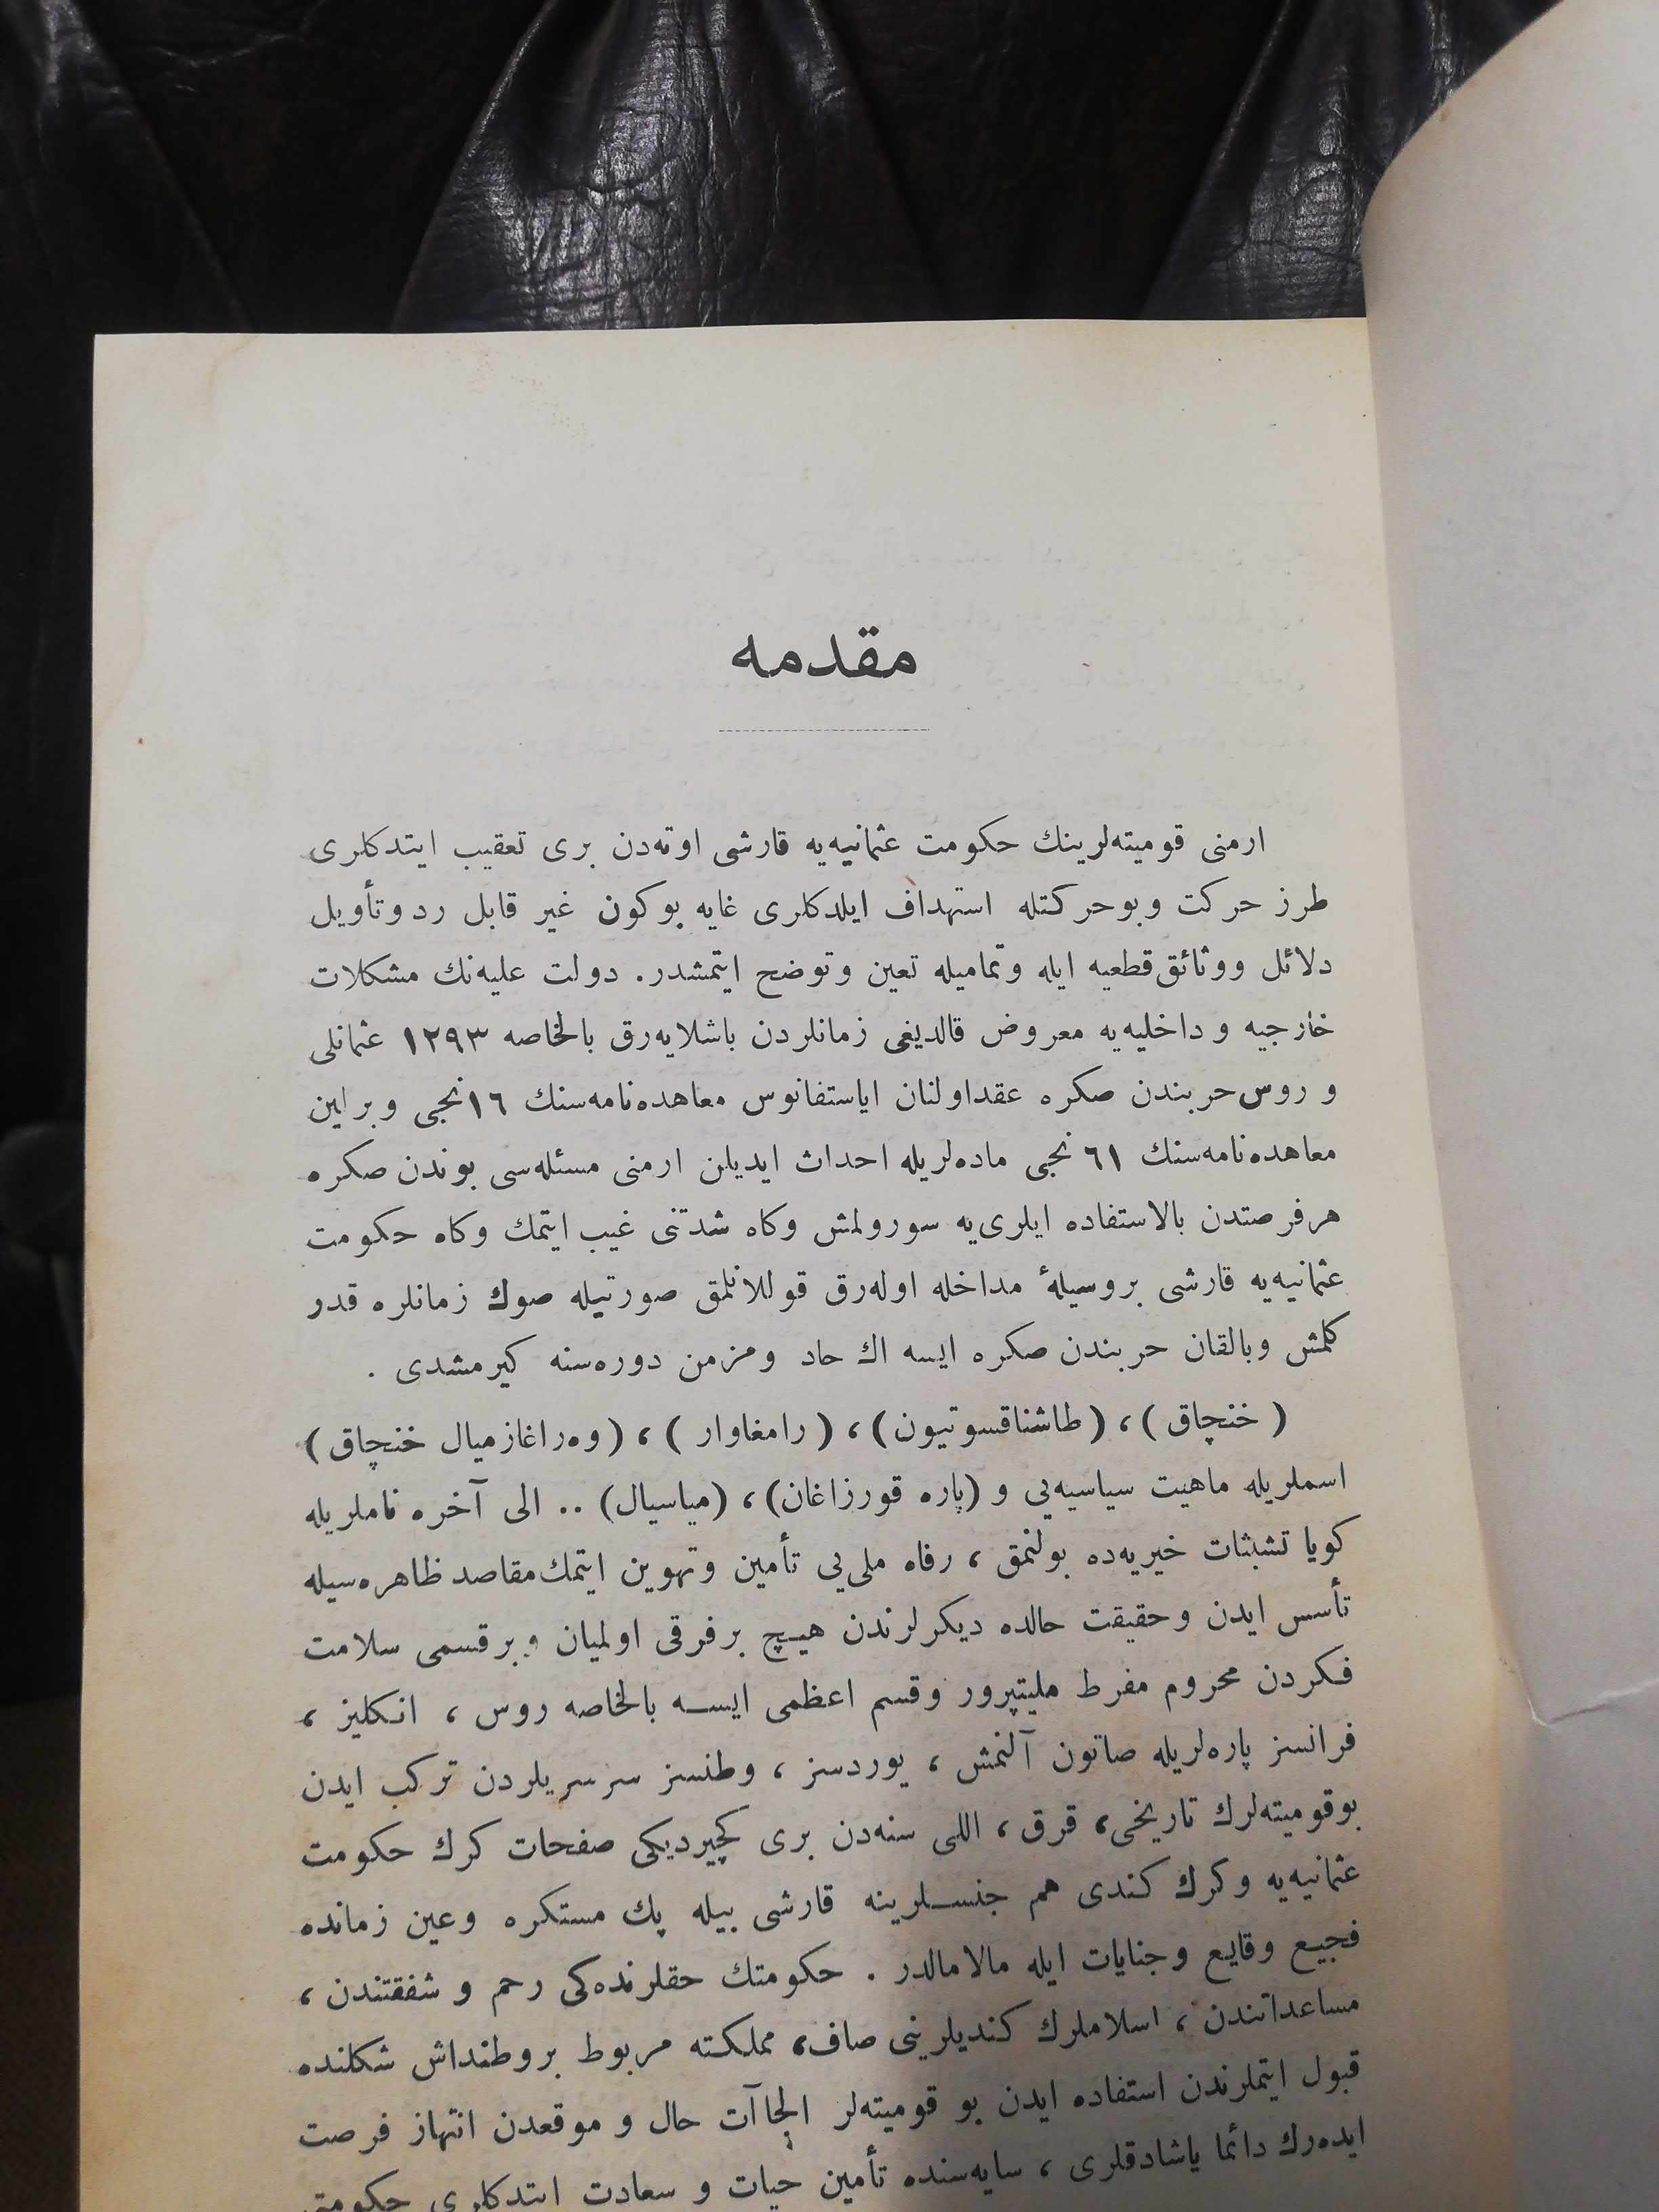 مقدمه
ارمنی قومیته‌لرینك حكومت عثمانیه‌یه قارشی اوته‌دن بری تعقیب ایتدكلری
طرز حركت وبوحركتله استهداف ایلدكلری غایه بوكون غیر قابل رد وتأویل
دلائل ووثائق قطعیه ایله وتمامیله تعین وتوضح ایتمشدر. دولت علیه‌نك مشكلات
خارجیه و داخلیه‌یه معروض قالدیغی زمانلردن باشلایه‌رق بالخاصه ١٢٩٣ عثمانلی
و روس حربندن صكره عقداولنان ایاستفانوس معاهده‌نامه‌سنك ١٦نجی وبرلین
معاهده‌نامه‌سنك ٦١ نجی ماده‌لریله احداث ایدیلن ارمنی مسئله‌سی بوندن صكره
هرفرصتدن بالاستفاده ایلری‌یه سورولمش وكاه شدتنی غیب ایتمك وكاه حكومت
عثمانیه‌یه قارشی بروسیلهٔ مداخله اوله‌رق قوللانلمق صورتیله صوك زمانلره قدر
كلمش وبالقان حربندن صكره ایسه اك حاد ومزمن دوره‌سنه كیرمشدی .
( خنچاق )، (طاشناقسوتیون)، ( رامغاوار )، (وه‌راغازمیال خنچاق)
اسملریله ماهیت سیاسیه‌یی و (پاره قورزاغان)، (میاسیال) .. الی آخره ناملریله
كویا تشبثات خیریه‌ده بولنمق ، رفاه ملی‌یی تأمین وتهوین ایتمك مقاصد ظاهره‌سیله
تأسس ایدن وحقیقت حالده دیكرلرندن هیچ برفرقی اولمیان وبرقسمی سلامت
فكردن محروم مفرط ملیتپرور وقسم اعظمی ایسه بالخاصه روس ، انكلیز ،
فرانسز پاره‌لریله صاتون آلنمش ، یوردسز ، وطنسز سرسریلردن تركب ایدن
بوقومیته‌لرك تاریخی، قرق ، اللی سنه‌دن بری كچیردیكی صفحات كرك حكومت
عثمانیه‌یه وكرك كندی هم جنسلرینه قارشی بیله پك مستكره وعین زمانده
فجیع وقایع وجنایات ایله مالامالدر . حكومتك حقلرنده‌كی رحم و شفقتندن ،
مساعداتندن ، اسلاملرك كندیلرینی صاف، مملكته مربوط بروطنداش شكلنده
قبول ایتملرندن استفاده ایدن بو قومیته‌لر الجاآت حال و موقعدن انتهاز فرصت
ایده‌رك دائما یاشادقلری ، سایه‌سنده تأمین حیات و سعادت ایتدكلری حكومتی